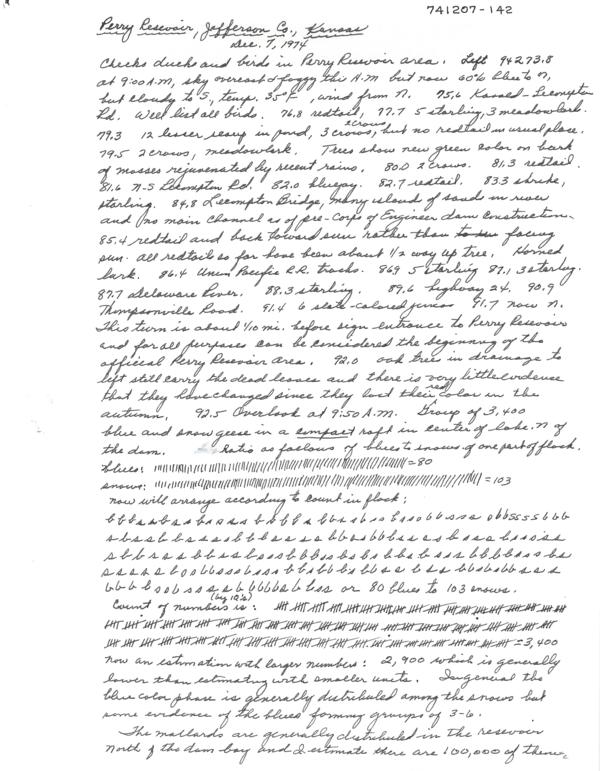 741207-142
Perry Resevoir, Jefferson Co., Kansas
Dec. 7, 1974
Checks ducks and birds in Perry Resevoir area. Left 94273.8
at 9:00 A.M, sky overcast & foggy this A.M but now 60% blue to N,
but cloudy to S, temp. 35°F, wind from N. 75.6 Kasold-Lecompton
Rd. Will list all birds. 76.8 redtail, 77.7 5 starling, 3 meadowlark.
79.3 12 lesser scaup in pond, 3 crows, but no redtail in usual place.
79.5 2 crows, meadowlark. Trees show new green color on bark
of mosses rejuvenated by recent rains. 80.0 2 crows. 81.3 redtail.
81.6 N-S Lecompton Rd. 82.0 bluejay. 82.7 redtail. 83.3 shrike,
starling. 84.8 Lecompton Bridge, many island of sands in river
and no main channel as of pre-Corps of Engineer dam construction.
85.4 redtail and back toward sun rather than facing
sun. All redtail so far have been about 1/2 way up tree. Horned
lark. 86.4 Union Pacific R.R. tracks. 869 5 starling 87.1 3 starling.
87.7 Delaware River. 88.3 starling. 89.6 highway 24. 90.9
Thompsonville Road. 91.4 6 slate-colored juncos 91.7 now N.
This turn is about 1/10 mi. before sign entrance to Perry Resevoir
and for all purposes can be considered the beginning of the
official Perry Resevoir area. 92.0 oak trees in drainage to
left still carry the dead leaves and there is very little evidence
that they have changed since they lost their red color in the
autumn. 92.5 Overlook at 9:50 A.M. Group of 3,400
blue and snow geese in a compact raft in center of lake N of
the dam. Ratio as follows of blues to snows of one part of flock.
blues: =80
snows: =103
now will arrange according to count in flock:
or 80 blues to 103 snows.
Count of numbers is: (by 10's)
=3,400
now an estimation with larger numbers: 2,900 which is generally
lower than estimating with smaller units. In general the
blue color phase is generally distributed among the snows but
some evidence of the blues forming groups of 3-6.
The mallards are generally distributed in the resevoir
north of the dam bay and I estimate there are 100,000 of them.